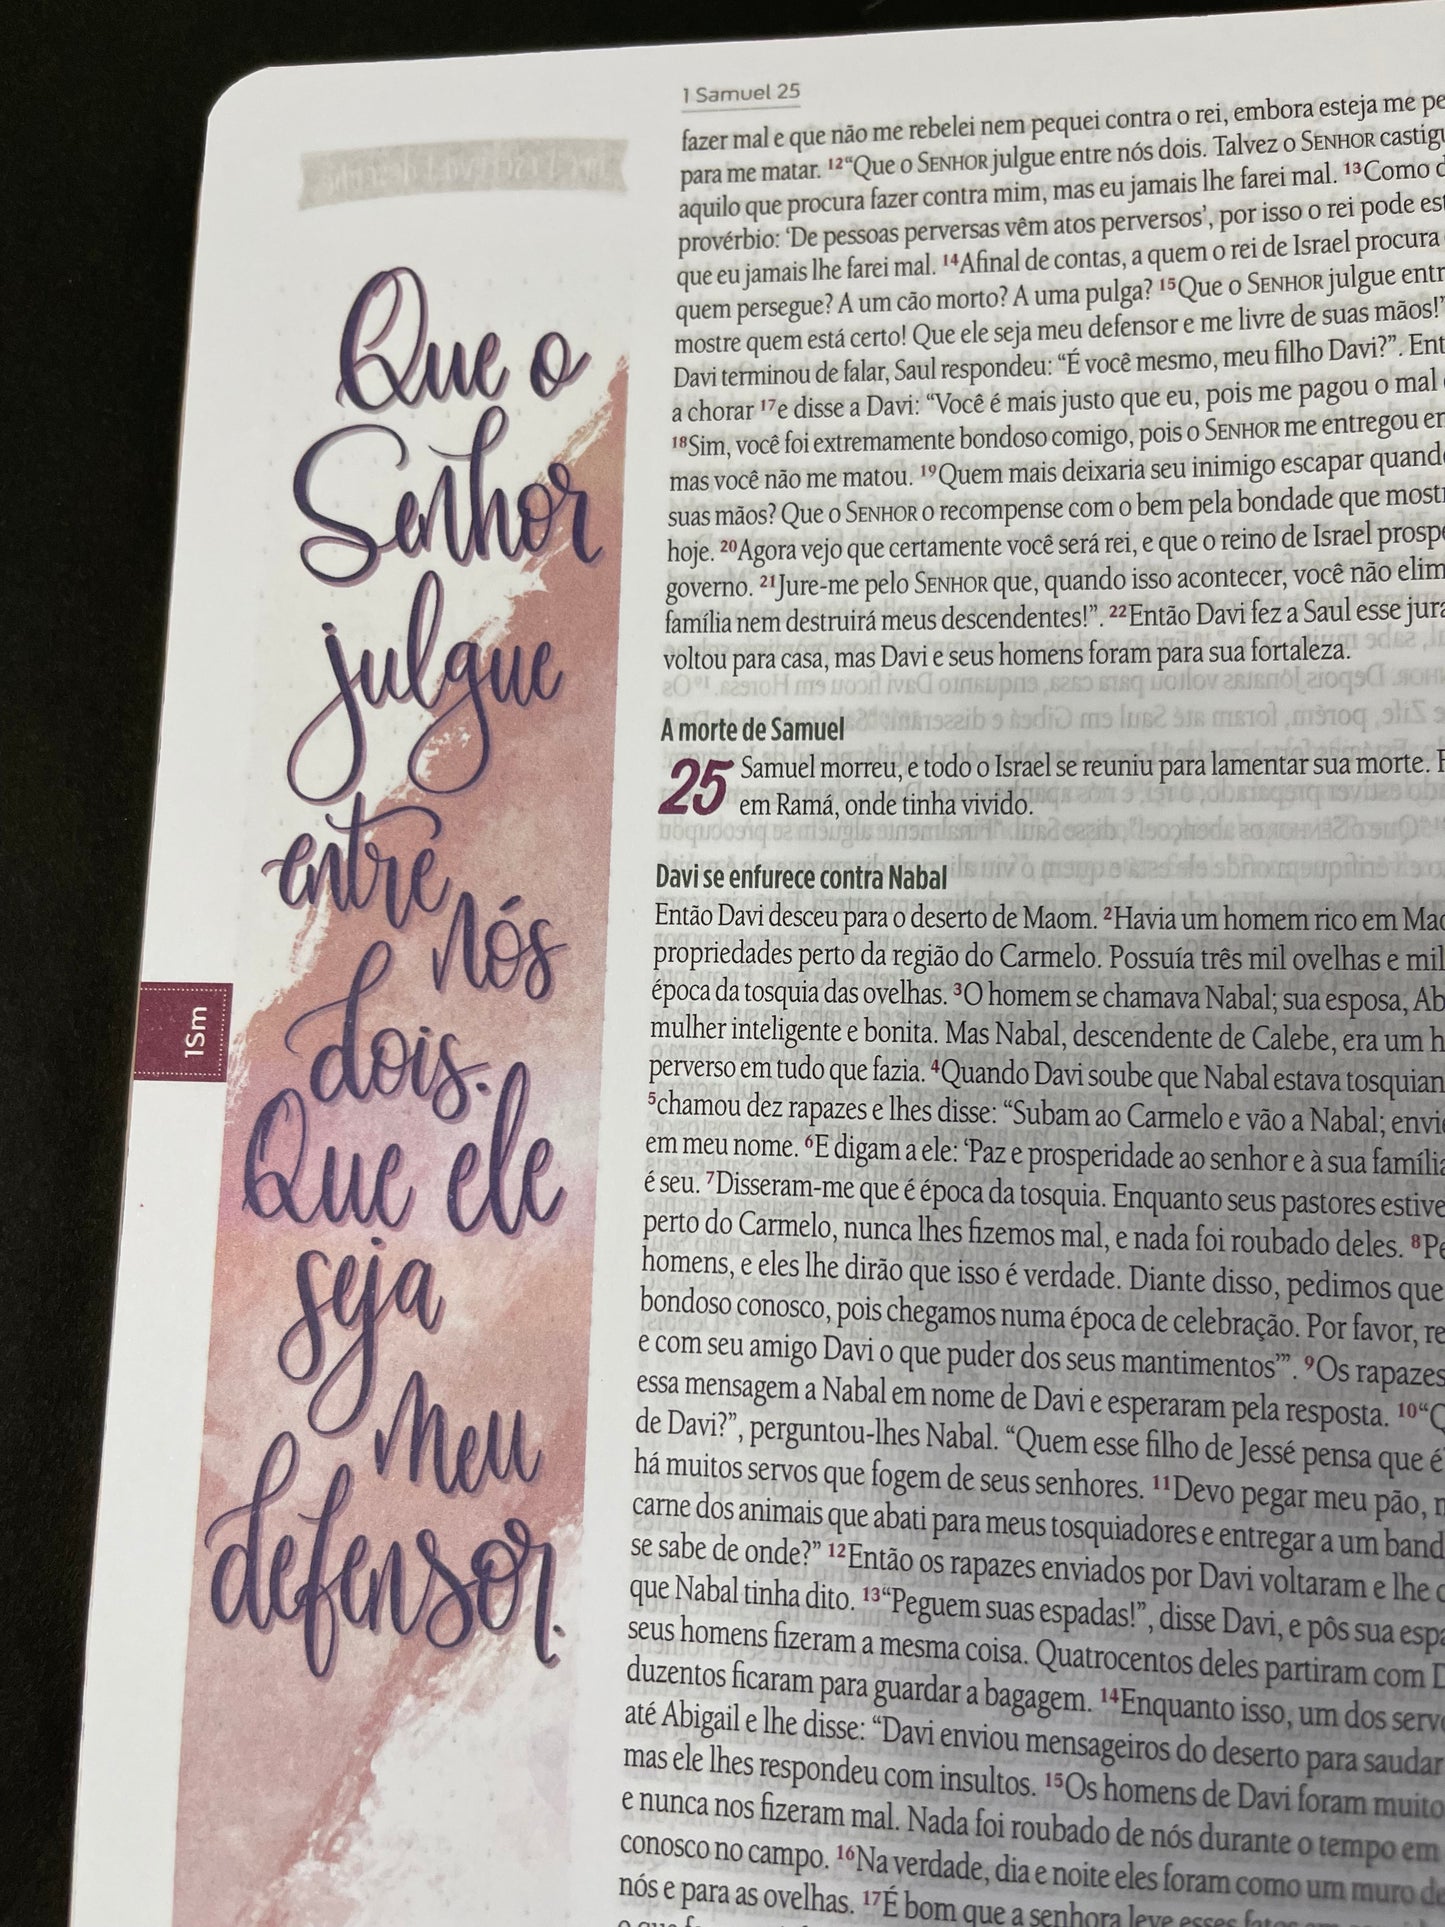 1 Samuel 25
Que o
Senhor
julgue
entre
nós
dois.
Que ele
seja
meu
defensor.
1Sm
fazer mal e que não me rebelei nem pequei contra o rei, embora esteja me
para me matar. 12“Que o SENHOR julgue entre nós dois. Talvez o SENHOR
aquilo que procura fazer contra mim, mas eu jamais lhe farei mal. 13Como
provérbio: ‘De pessoas perversas vêm atos perversos’, por isso o rei pode
que eu jamais lhe farei mal. 14Afinal de contas, a quem o rei de Israel procura
quem persegue? A um cão morto? A uma pulga? 15Que o SENHOR julgue
mostre quem está certo! Que ele seja meu defensor e me livre de suas mãos!”
Davi terminou de falar, Saul respondeu: “É você mesmo, meu filho Davi?”.
a chorar 17e disse a Davi: “Você é mais justo que eu, pois me pagou o mal
18Sim, você foi extremamente bondoso comigo, pois o SENHOR me entregou
mas você não me matou. 19Quem mais deixaria seu inimigo escapar
suas mãos? Que o SENHOR o recompense com o bem pela bondade que
hoje. 20Agora vejo que certamente você será rei, e que o reino de Israel
governo. 21Jure-me pelo SENHOR que, quando isso acontecer, você não
família nem destruirá meus descendentes!”. 22Então Davi fez a Saul esse
voltou para casa, mas Davi e seus homens foram para sua fortaleza.
A morte de Samuel
25 Samuel morreu, e todo o Israel se reuniu para lamentar sua morte.
em Ramá, onde tinha vivido.
Davi se enfurece contra Nabal
Então Davi desceu para o deserto de Maom. 2Havia um homem rico em
propriedades perto da região do Carmelo. Possuía três mil ovelhas e mil
época da tosquia das ovelhas. 3O homem se chamava Nabal; sua esposa,
mulher inteligente e bonita. Mas Nabal, descendente de Calebe, era um
perverso em tudo que fazia. 4Quando Davi soube que Nabal estava
5chamou dez rapazes e lhes disse: “Subam ao Carmelo e vão a Nabal;
em meu nome. 6E digam a ele: ‘Paz e prosperidade ao senhor e à sua
é seu. 7Disseram-me que é época da tosquia. Enquanto seus pastores
perto do Carmelo, nunca lhes fizemos mal, e nada foi roubado deles. 8
homens, e eles lhe dirão que isso é verdade. Diante disso, pedimos que
bondoso conosco, pois chegamos numa época de celebração. Por favor,
e com seu amigo Davi o que puder dos seus mantimentos’”. 9Os rapazes
essa mensagem a Nabal em nome de Davi e esperaram pela resposta. 10“
de Davi?”, perguntou-lhes Nabal. “Quem esse filho de Jessé pensa que é
há muitos servos que fogem de seus senhores. 11Devo pegar meu pão,
carne dos animais que abati para meus tosquiadores e entregar a um
se sabe de onde?” 12Então os rapazes enviados por Davi voltaram e lhe
que Nabal tinha dito. 13“Peguem suas espadas!”, disse Davi, e pôs sua
seus homens fizeram a mesma coisa. Quatrocentos deles partiram com
duzentos ficaram para guardar a bagagem. 14Enquanto isso, um dos
até Abigail e lhe disse: “Davi enviou mensageiros do deserto para saudar
mas ele lhes respondeu com insultos. 15Os homens de Davi foram muito
e nunca nos fizeram mal. Nada foi roubado de nós durante o tempo em
conosco no campo. 16Na verdade, dia e noite eles foram como um muro
nós e para as ovelhas. 17É bom que a senhora leve esses